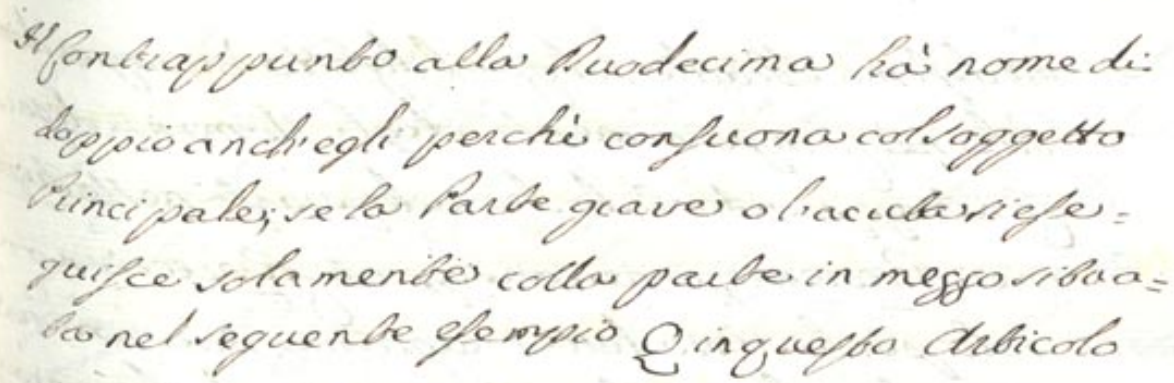 Il Contrappunto alla Duodecima hà nome di
doppio anch'egli perchè consuona col soggetto
Principale; se la Parte grave o l'acuta si ese=
guisce solamente colla parte in mezzo situa=
ta nel seguente esempio Q in questo Articolo